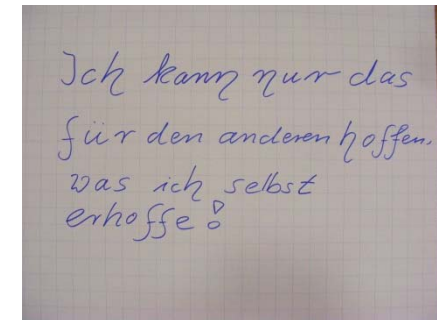 Ich kann nur das
für den anderen hoffen.
was ich selbst
erhoffe!